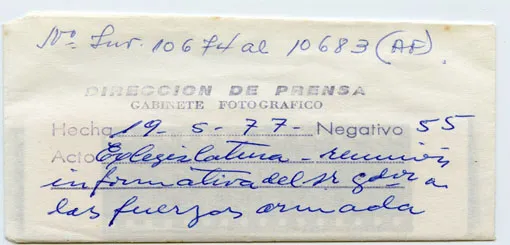 Nº Inv. 10674 al 10683 (AF).
DIRECCION DE PRENSA
GABINETE FOTOGRAFICO
Hecha 19-5-77- Negativo 55
Acto Exlegislatura - reunión
informativa del sr gdor a
las fuerzas armada